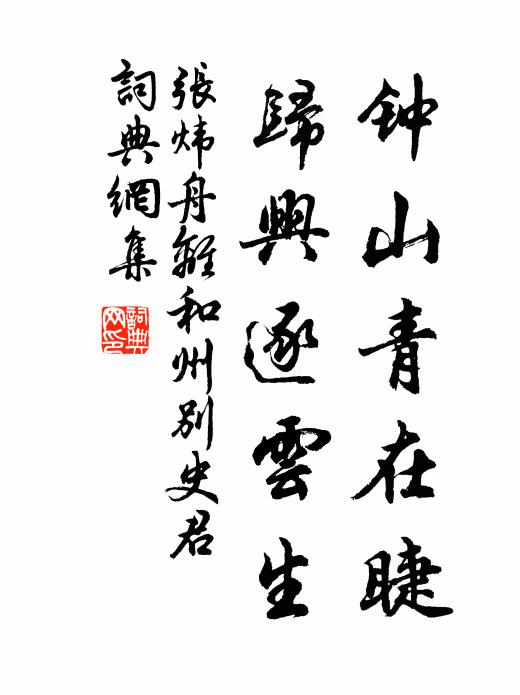 钟山青在睫
歸興逐雲生
張炜舟離和州別史君
詞典網集
詞典网印